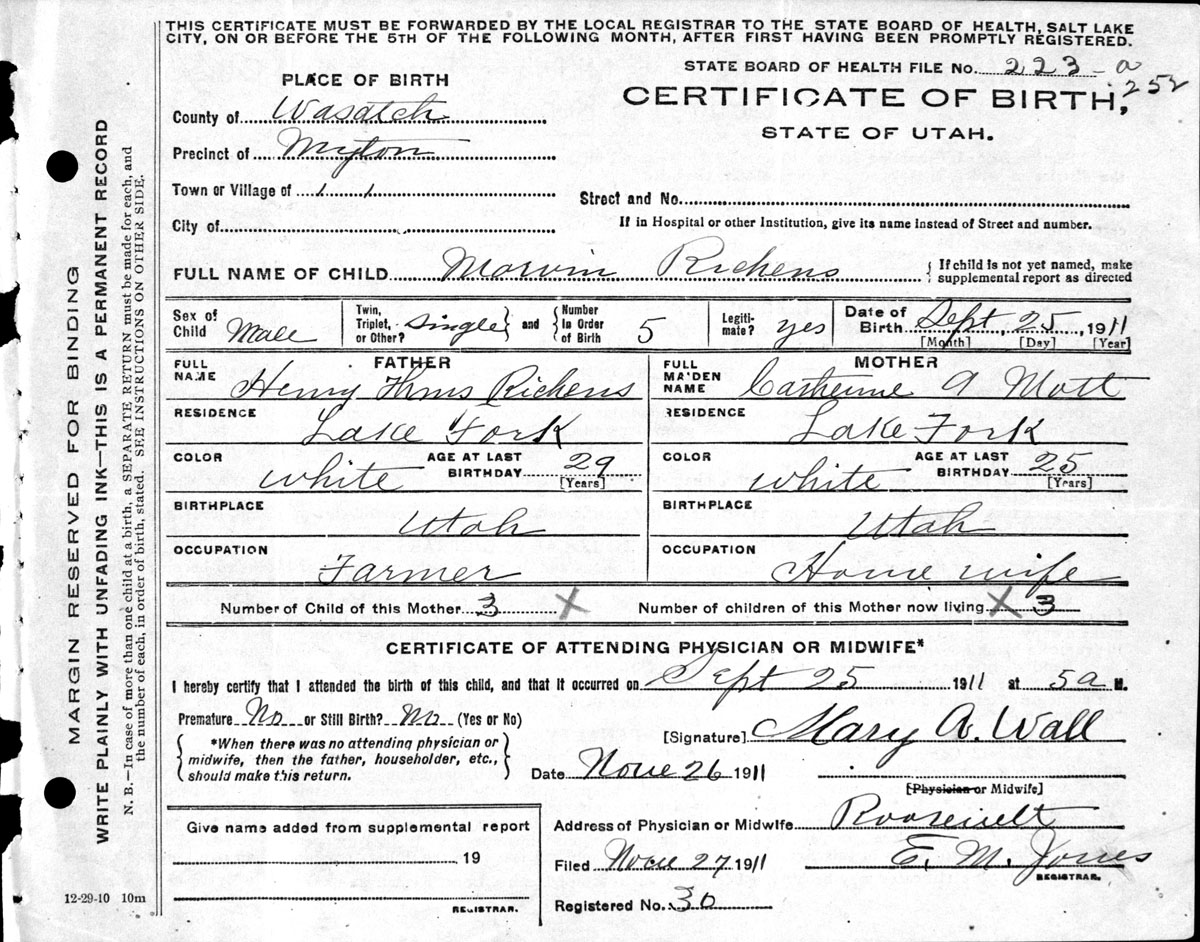 THIS CERTIFICATE MUST BE FORWARDED BY THE LOCAL REGISTRAR TO THE STATE BOARD OF HEALTH, SALT LAKE
CITY, ON OR BEFORE THE 5TH OF THE FOLLOWING MONTH, AFTER FIRST HAVING BEEN PROMPTLY REGISTERED.
STATE BOARD OF HEALTH FILE No. 223-a
252
PLACE OF BIRTH
CERTIFICATE OF BIRTH,
STATE OF UTAH.
County of Wasatch
Precinct of Myton
Town or Village of 1 1
Street and No.
City of
If in Hospital or other Institution, give its name instead of Street and number.
FULL NAME OF CHILD Morvin Rickens { If child is not yet named, make supplemental report as directed
Sex of Child Male
Twin, Triplet, or Other? Single } and { Number In Order of Birth 5
Legiti-mate? yes
Date of Birth Sept 25 1911
[Month] [Day] [Year]
FATHER
FULL NAME Henry Thms Rickens
RESIDENCE Lake Fork
COLOR white AGE AT LAST BIRTHDAY 29 [Years]
BIRTHPLACE Utah
OCCUPATION Farmer
MOTHER
FULL MAIDEN NAME Catherine A Mott
RESIDENCE Lake Fork
COLOR white AGE AT LAST BIRTHDAY 25 [Years]
BIRTHPLACE Utah
OCCUPATION House wife
Number of Child of this Mother 3 X Number of children of this Mother now living X 3
CERTIFICATE OF ATTENDING PHYSICIAN OR MIDWIFE*
I hereby certify that I attended the birth of this child, and that it occurred on Sept 25 1911 at 5a M.
Premature No or Still Birth? No (Yes or No)
[Signature] Mary A. Wall
{ *When there was no attending physician or
midwife, then the father, householder, etc.,
should make this return. }
Date Nove 26 1911
[Physician or Midwife]
Give name added from supplemental report
19
REGISTRAR.
Address of Physician or Midwife Roosevelt
Filed Nove 27 1911 E. M. Jones
REGISTRAR.
Registered No. 30
12-29-10 10m
MARGIN RESERVED FOR BINDING
WRITE PLAINLY WITH UNFADING INK—THIS IS A PERMANENT RECORD
N. B.—In case of more than one child at a birth, a SEPARATE RETURN must be made for each, and
the number of each, in order of birth, stated. SEE INSTRUCTIONS ON OTHER SIDE.